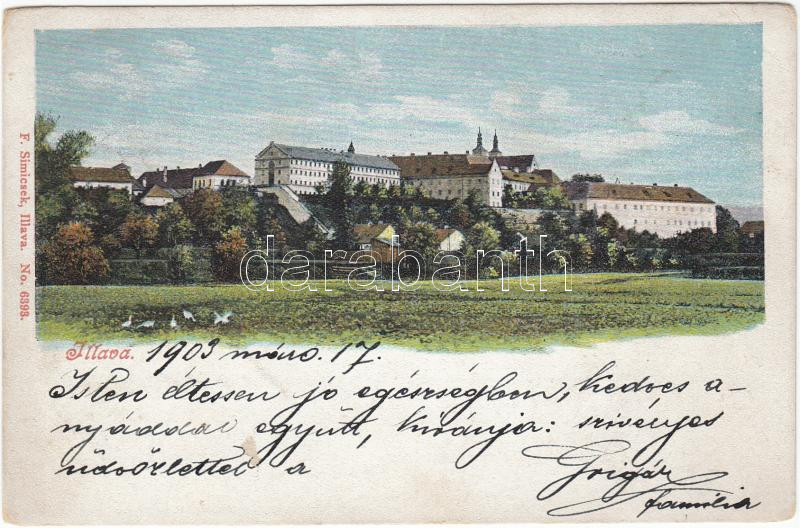 F. Simicsek, Illava. No. 6393.
darabanth
Illava. 1903 márc. 17.
Isten éltessen jó egészségben, kedves a-
nyáddal együtt, kívánja: szívélyes
üdvözlettel a
Grigár
família